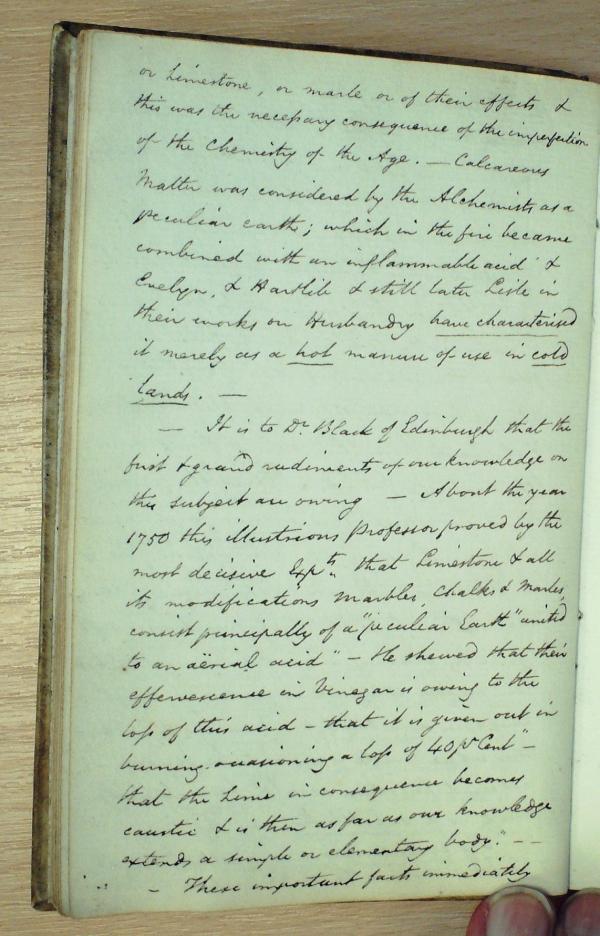 or Limestone, or marle or of their effects &
this was the necessary consequence of the imperfection
of the Chemistry of the Age. — Calcareous
Matter was considered by the Alchemists as a
peculiar earth; which in the fire became
combined with an inflammable acid &
Evelyn, & Hartlib & still later Lisle in
their works on Husbandry have characterised
it merely as a hot manure of use in cold
lands. —
— It is to Dr. Black of Edinburgh that the
first & grand rudiments of our knowledge on
this subject are owing — About the year
1750 this illustrious Professor proved by the
most decisive Expts. that Limestone & all
its modifications Marbles, Chalks & Marles,
consist principally of a "peculiar Earth" united
to an aërial acid" — He shewed that their
effervescence in Vinegar is owing to the
loss of this acid — that it is given out in
burning occasioning a loss of 40 pr Cent" —
that the Lime in consequence becomes
caustic & is then as far as our knowledge
extends a simple or elementary body." — —
— These important facts immediately